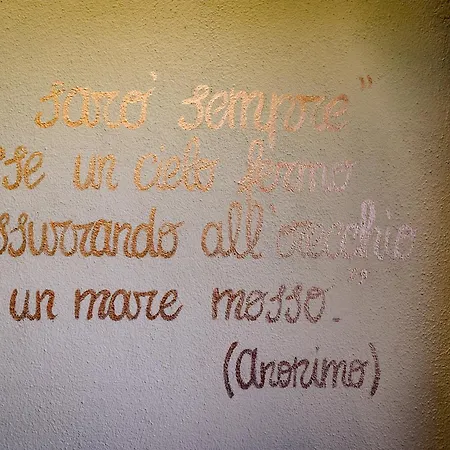 sarò sempre"
sse un cielo fermo
ssurrando all'orecchio
un mare mosso."
(Anonimo)